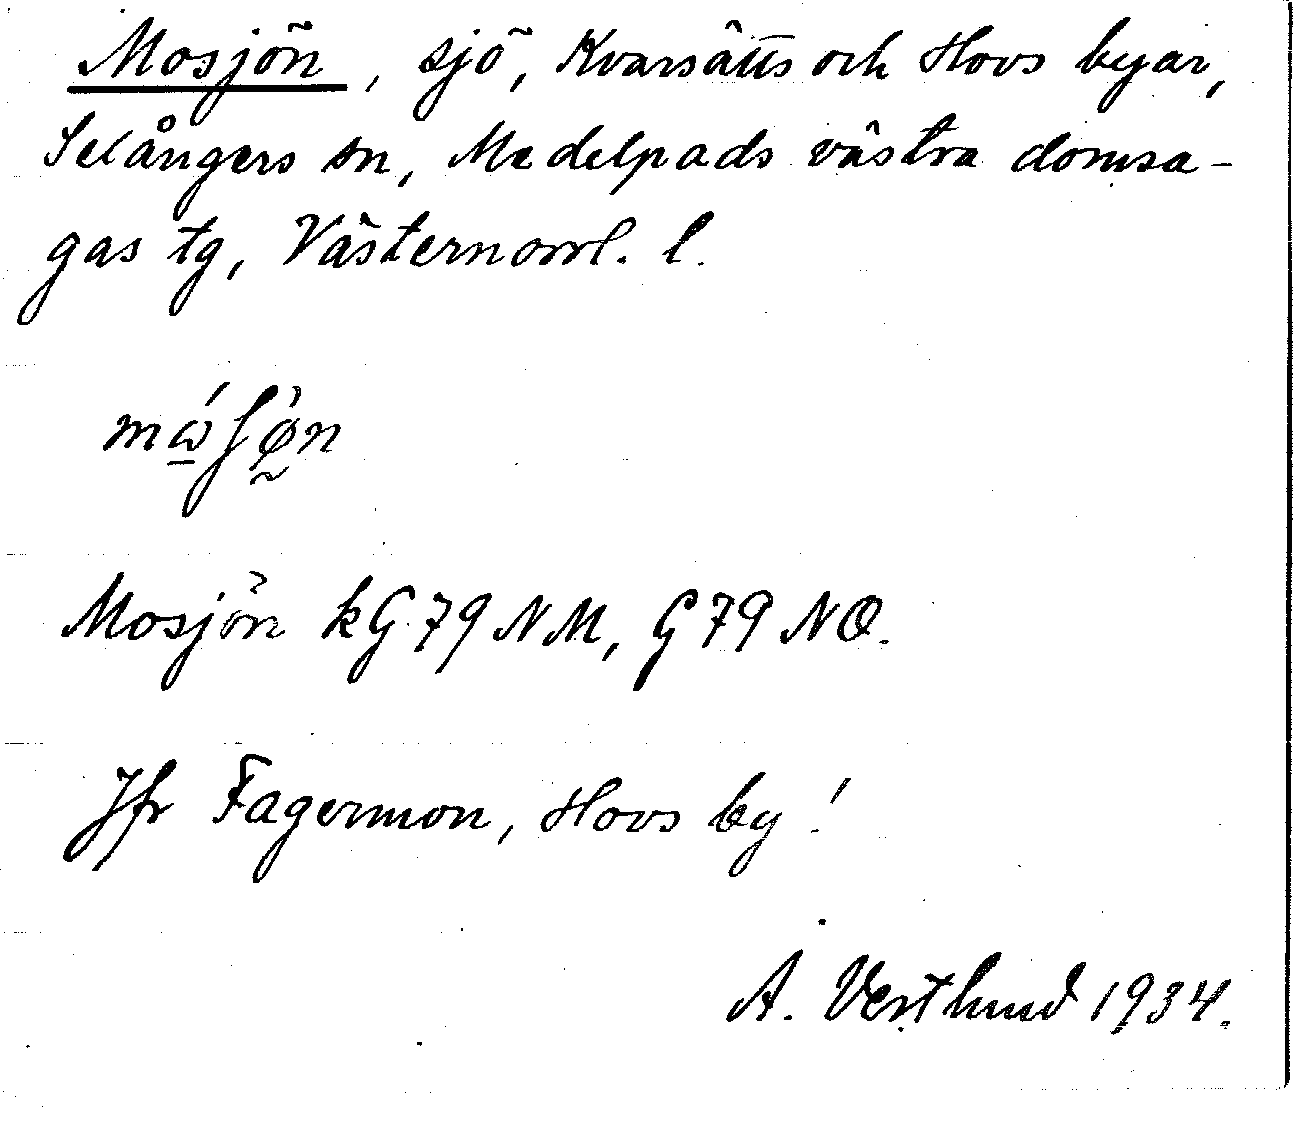 Mosjön, sjö, Kvarsätts och Hovs byar,
Selångers sn, Medelpads västra domsa-
gas tg, Västernorrl. l.
mɷ́ʃø̀n
Mosjön kG 79 NM, G 79 NO.
Jfr Fagermon, Hovs by!
A. Vestlund 1934.